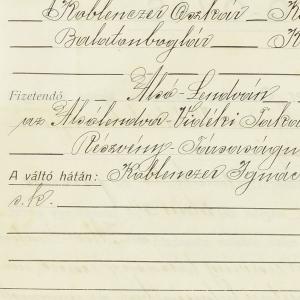 Koblenczer Oszkár
Balatonboglár
Fizetendő Alsó-Lendván
az Alsólendva-Vidéki Taka
Részvény-Társaságn
A váltó hátán: Koblenczer Ignác
s.k.